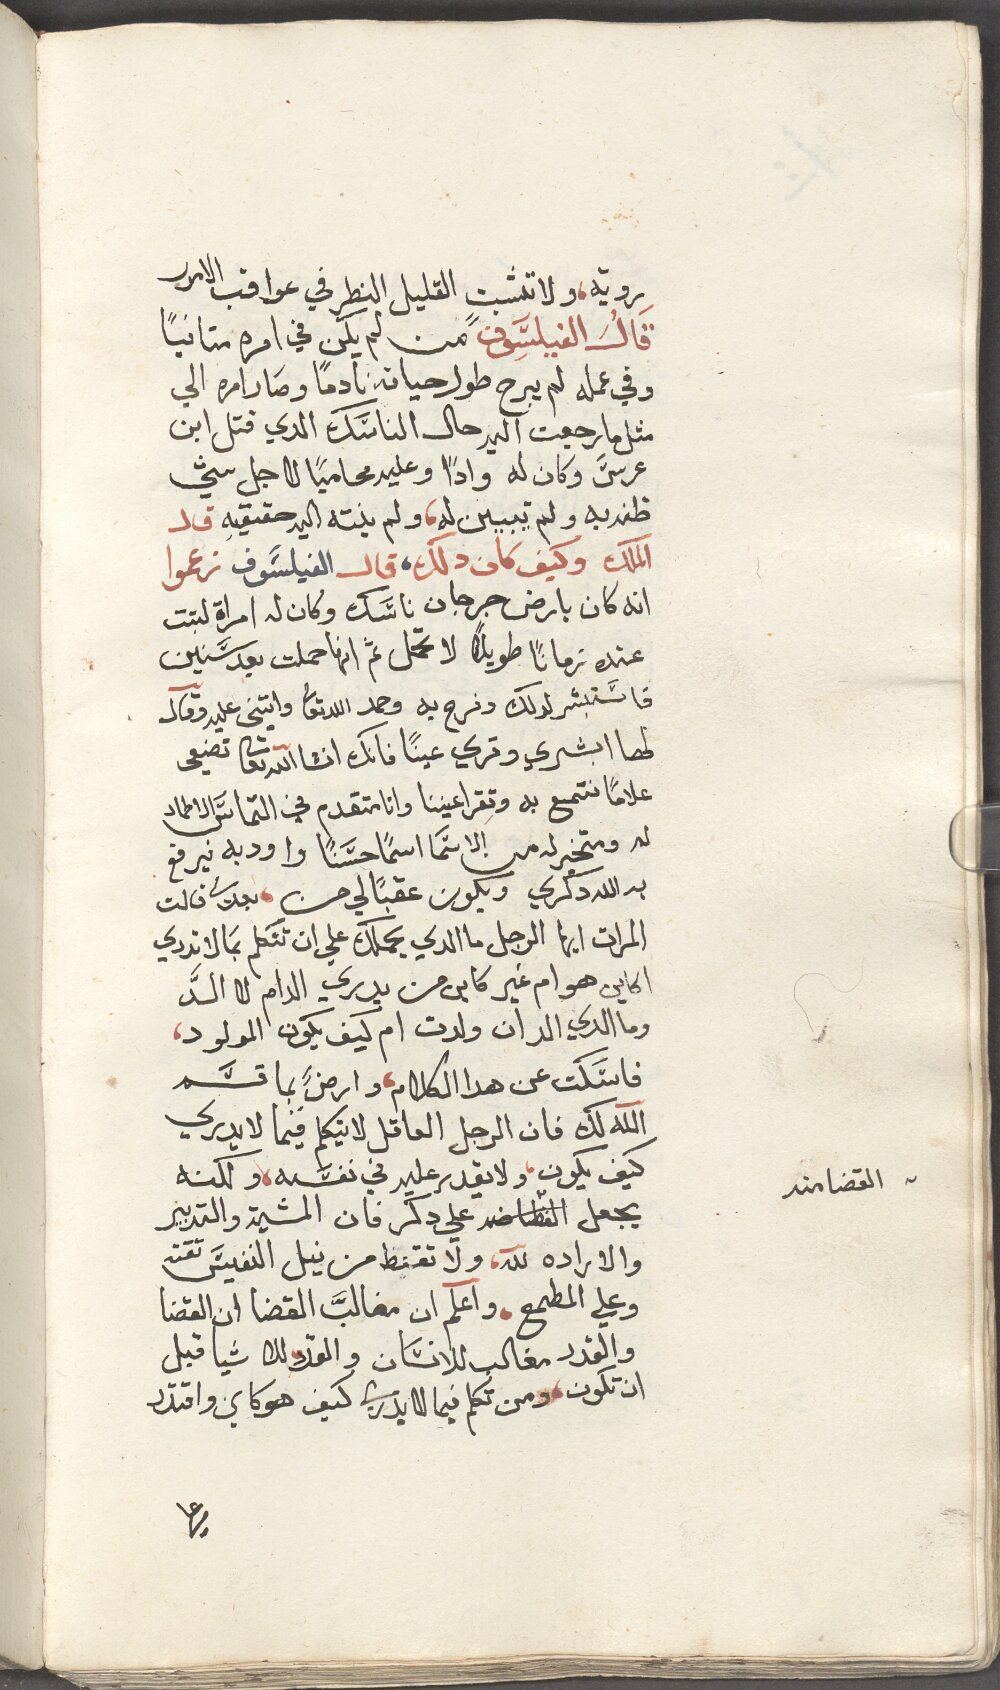 روية، ولا تثبت القليل النظر في عواقب الامور
قال الفيلسوف من لم يكن في امره متانيًا
وفي عمله لم يبرح طول حياته نادمًا وصار امره الي
مثل ما رجعت اليه حال الناسك الدي قتل ابن
عرس وكان له وادًا وعليه محاميًا لاجل شي
ظفر به ولم تبين له، ولم ينته اليه حقيقيه قال
الملك وكيف كان دلك، قال الفيلسوف زعموا
انه كان بارض جرجان ناسك وكان له امراة لبتت
عنده زمانًا طويلًا لا تحمل ثم انها حملت بعد سنين
فاستبشر لدلك وفرح به وحمد الله تعا واتني عليه وقال
لها ابشري وقري عينًا فانك انشا الله تعا تضعي
غلامًا نتمتع به وتقر اعيننا وانا متقدم في التماس الاطماد
له ومتخير له من الاسما اسمًا حسنًا واودبه فيرفع
به الله دكري ويكون عقبًا لي من، بعدي فالت
المرات ايها الرجل ما الدي يحملك علي ان تتكلم بما لا تدري
اكاين هو ام غير كاين من يدري الدام لا الد
وما الدي الد ان ولدت ام كيف يكون المولود،
فاسكت عن هدا الكلام، وارض بما قسم
الله لك فان الرجل العاقل لا يتكلم فيما لا يدري
كيف يكون، ولا يقدر عليه في نفسه، ولكنه
يجعل علي دكر فان المشية والتدبير
والاراده لله، ولا تقنط من نيل النفيس ثقته
وعلي المطمع، واعلم ان مغالب القضا ان القضا
والقدر مغالب للانسان شيا قبل
ان تكون، ومن تكلم فيما لا يدري كيف هو كاين واقتدر
القضا منه